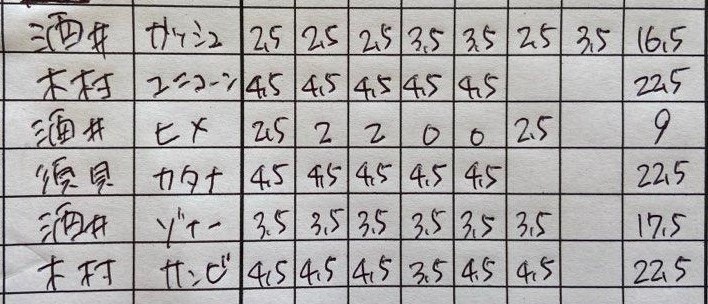 酒井 ガッシュ 2.5 2.5 2.5 3.5 3.5 2.5 3.5 16.5
木村 ユニコーン 4.5 4.5 4.5 4.5 4.5 22.5
酒井 ヒメ 2.5 2 2 0 0 2.5 9
須貝 カタナ 4.5 4.5 4.5 4.5 4.5 22.5
酒井 ゾナー 3.5 3.5 3.5 3.5 3.5 3.5 17.5
木村 サンビ 4.5 4.5 4.5 3.5 4.5 4.5 22.5